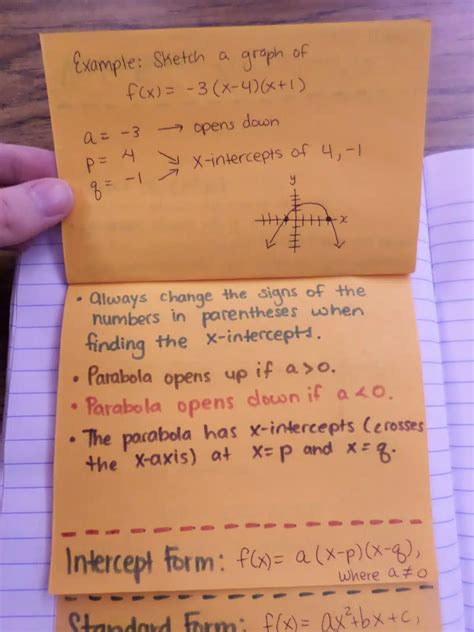 Example: Sketch a graph of
f(x) = -3(x-4)(x+1)
a = -3 → opens down
p = 4
q = -1
x-intercepts of 4, -1
y
x
• Always change the signs of the
numbers in parentheses when
finding the x-intercepts.
• Parabola opens up if a>0.
• Parabola opens down if a<0.
• The parabola has x-intercepts (crosses
the x-axis) at x=p and x=q.
Intercept Form: f(x)= a(x-p)(x-q),
where a≠0
Standard Form: f(x)= ax²+bx+c,